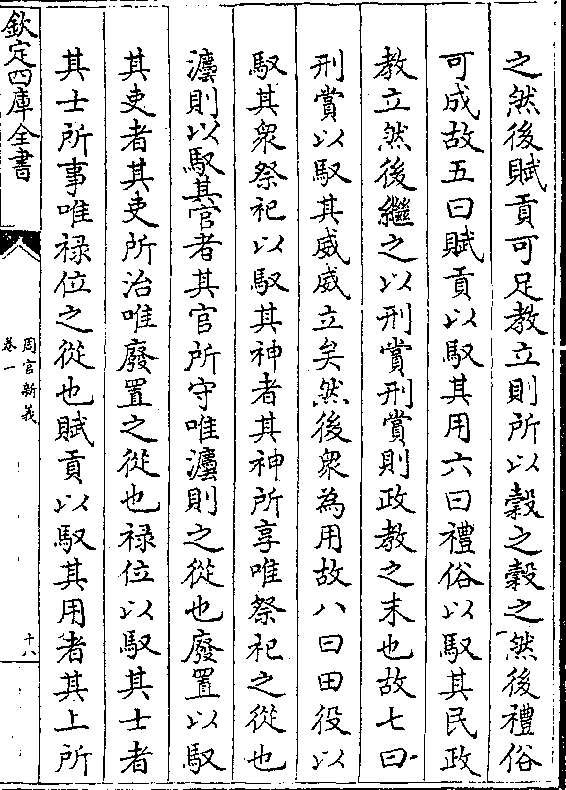 之然後賦貢可足教立則所以糓之糓之然後禮俗
可成故五曰賦貢以馭其用六曰禮俗以馭其民政
教立然後繼之以刑賞刑賞則政教之末也故七曰
刑賞以馭其威威立矣然後衆為用故八曰田役以
馭其衆祭祀以馭其神者其神所享唯祭祀之從也
灋則以馭其官者其官所守唯灋則之從也廢置以馭
其吏者其吏所治唯廢置之從也禄位以馭其士者
其士所事唯禄位之從也賦貢以馭其用者其上所
欽定四庫全書
周官新義
卷一
十八